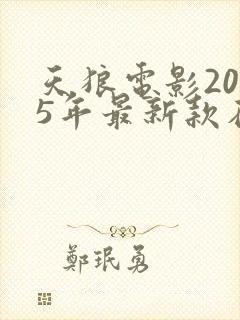 天狼電影20
5年最新款
鄭珉勇